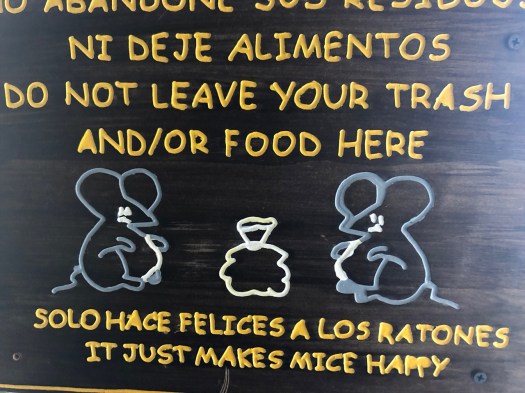 NO ABANDONE SUS RESIDUOS
NI DEJE ALIMENTOS
DO NOT LEAVE YOUR TRASH
AND/OR FOOD HERE
SOLO HACE FELICES A LOS RATONES
IT JUST MAKES MICE HAPPY